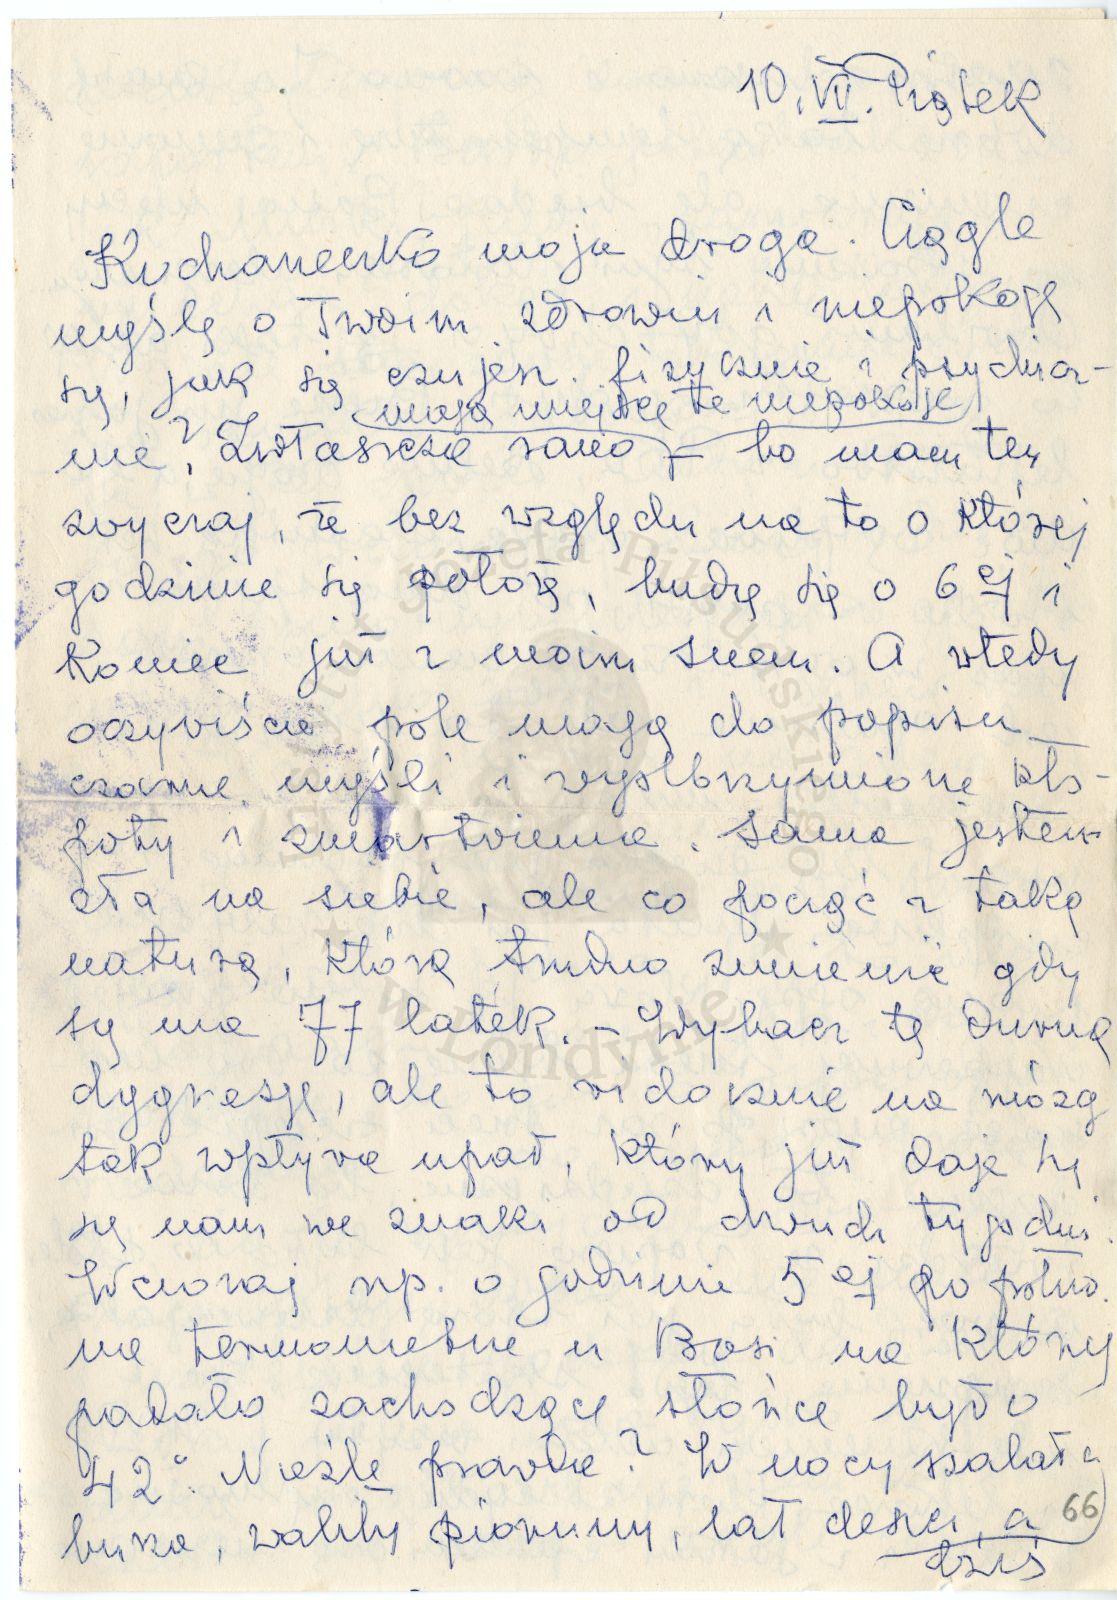 10. VII. Piątek
Kochaneczko moja droga. Ciągle
myślę o Twoim zdrowiu i niepokoję
się, jak się czujesz fizycznie i psychicz-
mają miejsce te niepokoje
nie? Zwłaszcza rano – bo mam ten
zwyczaj, że bez względu na to o której
godzinie się położę, budzę się o 6ej i
koniec już z moim snem. A wtedy
oczywiście pole mają do popisu
czarne myśli i wyolbrzymione kło-
poty i zmartwienia. Sama jestem
zła na siebie, ale co począć z taką
naturą, którą trudno zmienić gdy
się ma 77 latek. – Wybacz tę durną
dygresję, ale to widocznie na mózg
tak wpływa upał, który już daje się
się nam we znaki od dwuch tygodni.
Wczoraj np. o godzinie 5ej po połud.
na termometrze u Basi na który
padało zachodzące słońce było
42°. Nieźle prawda? W nocy szalała
burza, waliły pioruny, lał deszcz, a
dziś
66
Instytut Józefa Piłsudskiego
w Londynie